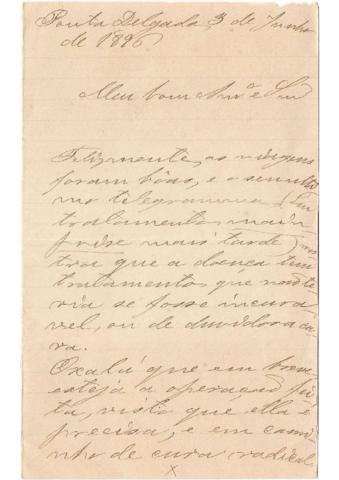 Ponta Delgada 3 de Junho
de 1896.
Meu bom Amº e Snr
Felizmente, as viagens
foram bôas, e o seu ulti
mo telegramma (Em
tratamento, mais
frise mais tarde) mos
tra que a doença tem
tratamento, que não te
ria se fosse incura
vel, ou de duvidosa cu
ra.
Oxalá que em breve
esteja a operação fei
ta, visto que ella é
precisa, e em cami
nho de cura radical